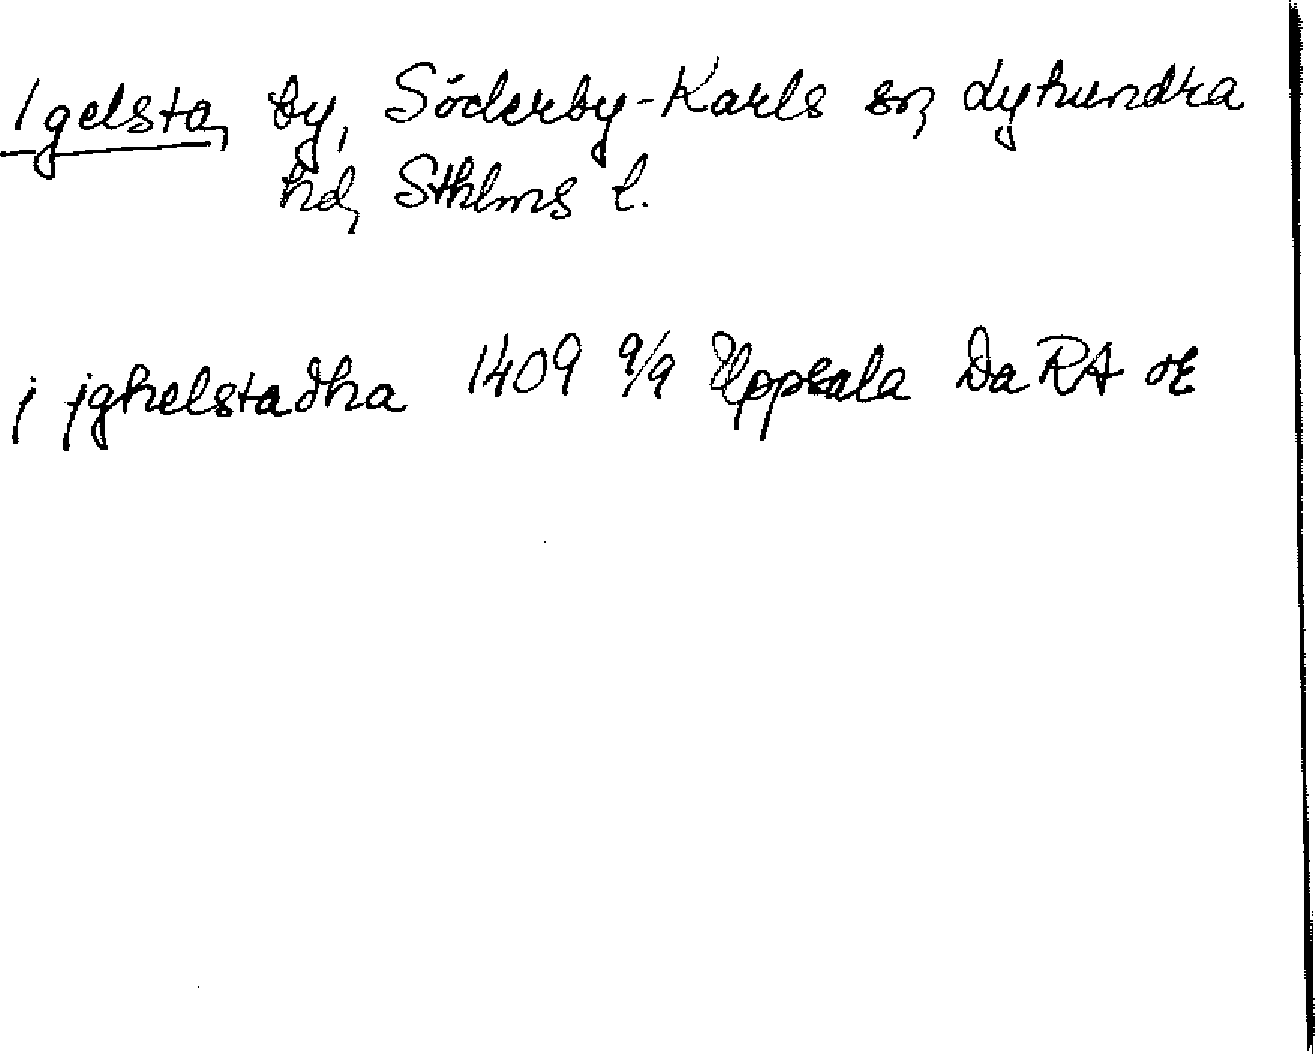 Igelsta, by, Söderby-Karls sn, Lyhundra
hd, Sthlms l.
j jghelstadha 1409 9/9 Uppsala Da RA or